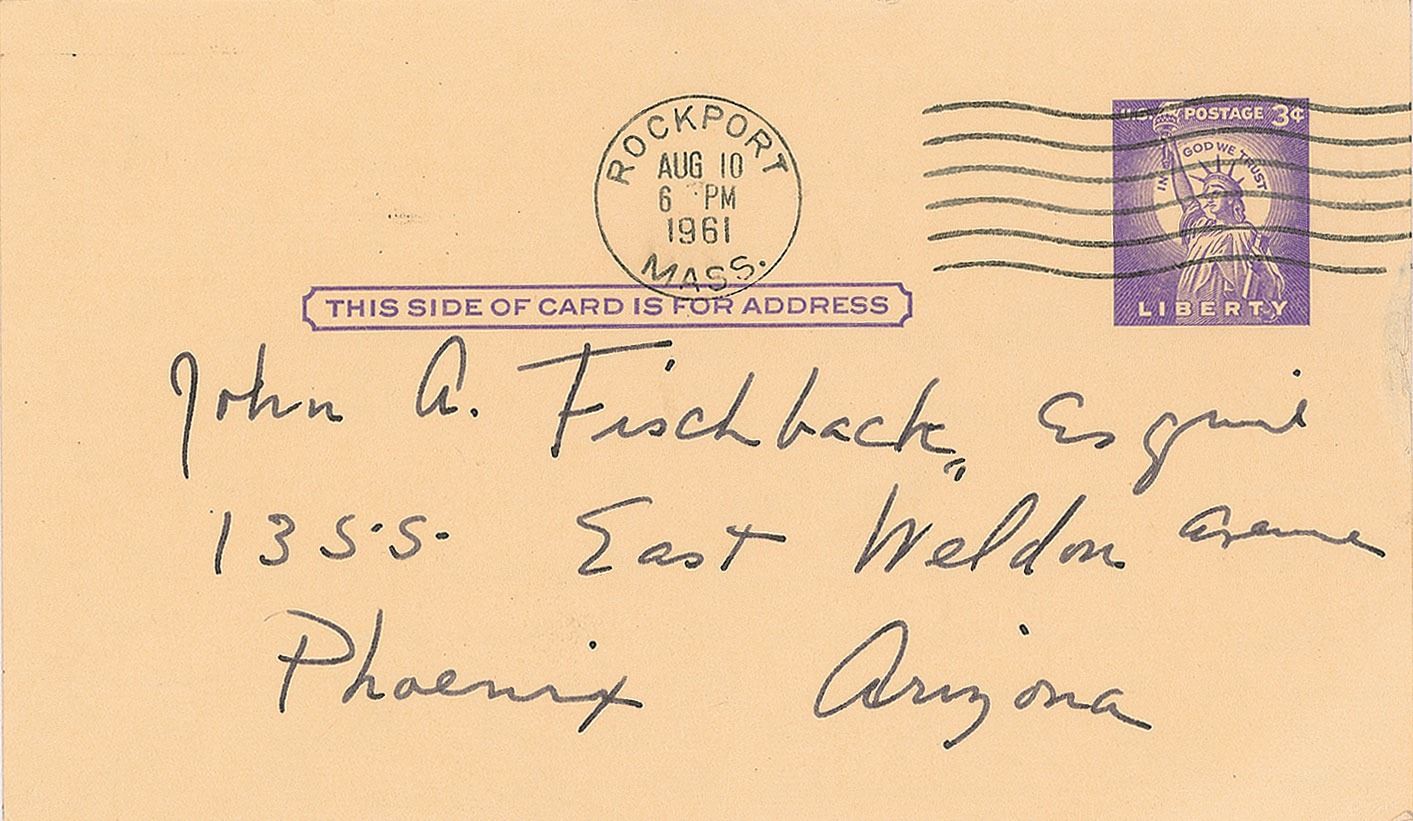 ROCKPORT
AUG 10
6 PM
1961
MASS.
U.S. POSTAGE 3¢
IN GOD WE TRUST
LIBERTY
THIS SIDE OF CARD IS FOR ADDRESS
John A. Fischback, Esquire
1355 East Weldon Avenue
Phoenix Arizona